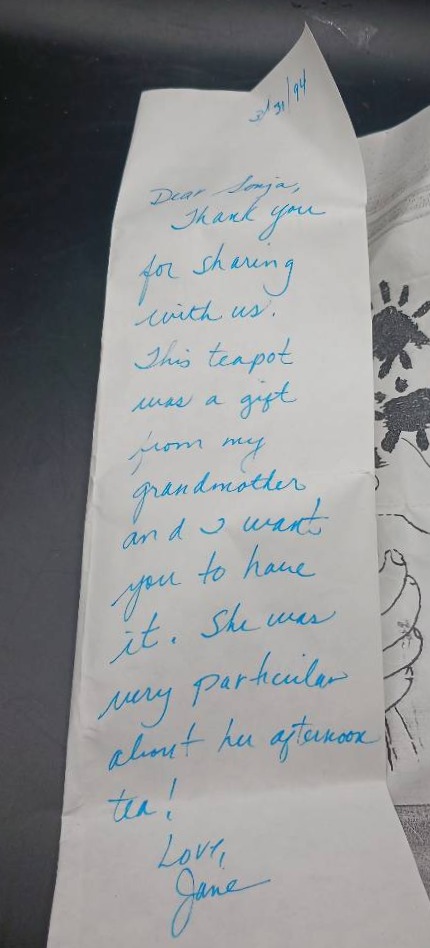 3/31/94
Dear Sonja,
Thank you
for sharing
with us.
This teapot
was a gift
from my
grandmother
and I want
you to have
it. She was
very particular
about her afternoon
tea!
Love,
Jane